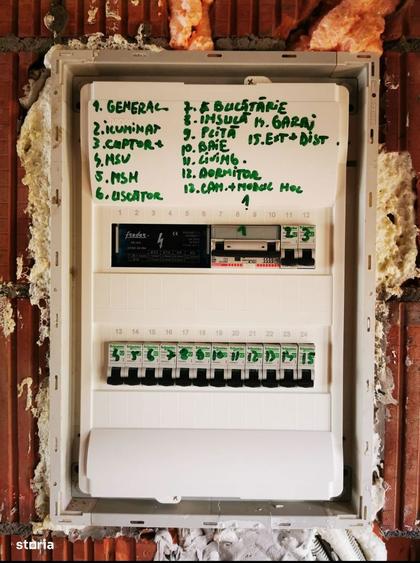 1. GENERAL
2. ILUMINAT
3. CUPTOR+
4. MSV
5. MSH
6. USCĂTOR
7. BUCĂTĂRIE
8. INSULĂ 14. GARAJ
9. PLITĂ 15. EXT+DIST
10. BAIE
11. LIVING.
12. DORMITOR
13. CAM.+MODUL HOL
1 2 3 4 5 6 7 8 9 10 11 12
1 2 3
13 14 15 16 17 18 19 20 21 22 23 24
4 5 6 7 8 9 10 11 12 13 14 15
storia